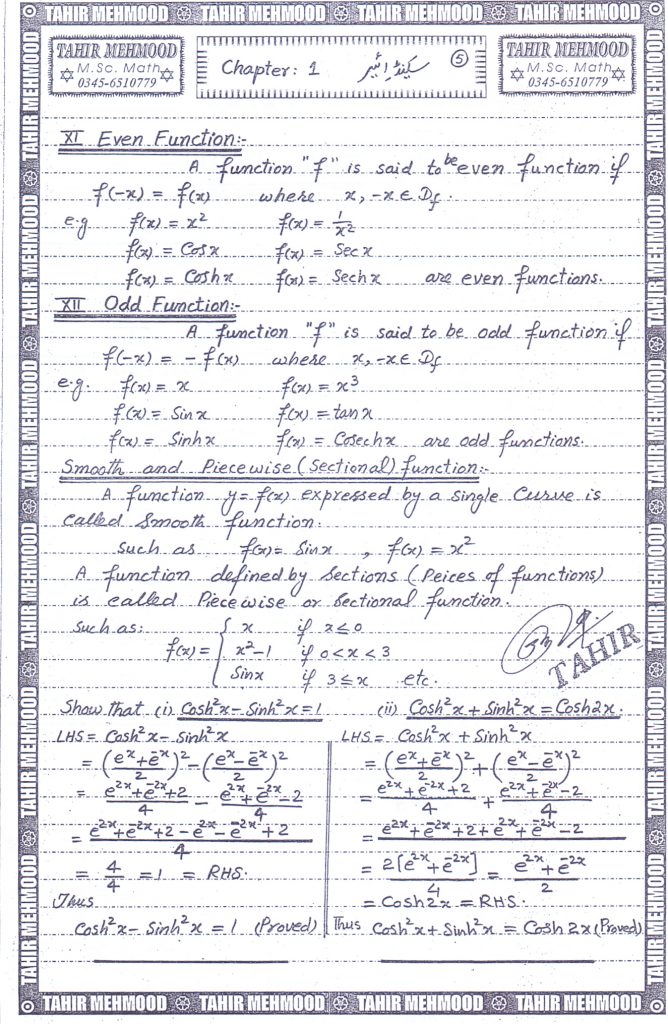 TAHIR MEHMOOD TAHIR MEHMOOD TAHIR MEHMOOD TAHIR MEHMOOD
TAHIR MEHMOOD
M.Sc. Math
0345-6510779
Chapter: 1
5
TAHIR MEHMOOD
M.Sc. Math
0345-6510779
XI Even Function:-
A function "f" is said to be even function if
f(-x) = f(x) where x, -x ∈ Df.
e.g f(x) = x² f(x) = 1/x²
f(x) = Cosx f(x) = Sec x
f(x) = Coshx f(x) = Sechx are even functions.
XII Odd Function:-
A function "f" is said to be odd function if
f(-x) = -f(x) where x, -x ∈ Df
e.g. f(x) = x f(x) = x³
f(x) = Sinx f(x) = tanx
f(x) = Sinhx f(x) = Cosechx are odd functions.
Smooth and Piecewise (Sectional) function:-
A function y = f(x) expressed by a single Curve is
called Smooth function.
Such as f(x) = Sinx , f(x) = x²
A function defined by Sections (Peices of functions)
is called Piecewise or Sectional function.
Such as:
f(x) = { x if x ≤ 0
x²-1 if 0 < x < 3
Sinx if 3 ≤ x etc.
TAHIR
Show that (i) Cosh²x - Sinh²x = 1 (ii) Cosh²x + Sinh²x = Cosh2x.
LHS = Cosh²x - Sinh²x
= (eˣ+e⁻ˣ/2)² - (eˣ-e⁻ˣ/2)²
= e²ˣ+e⁻²ˣ+2/4 - e²ˣ+e⁻²ˣ-2/4
= e²ˣ+e⁻²ˣ+2-e²ˣ-e⁻²ˣ+2/4
= 4/4 = 1 = RHS.
Thus
Cosh²x - Sinh²x = 1 (Proved)
LHS = Cosh²x + Sinh²x
= (eˣ+e⁻ˣ/2)² + (eˣ-e⁻ˣ/2)²
= e²ˣ+e⁻²ˣ+2/4 + e²ˣ+e⁻²ˣ-2/4
= e²ˣ+e⁻²ˣ+2+e²ˣ+e⁻²ˣ-2/4
= 2[e²ˣ+e⁻²ˣ]/4 = e²ˣ+e⁻²ˣ/2
= Cosh2x = RHS.
Thus Cosh²x + Sinh²x = Cosh 2x (Proved)
TAHIR MEHMOOD TAHIR MEHMOOD TAHIR MEHMOOD TAHIR MEHMOOD